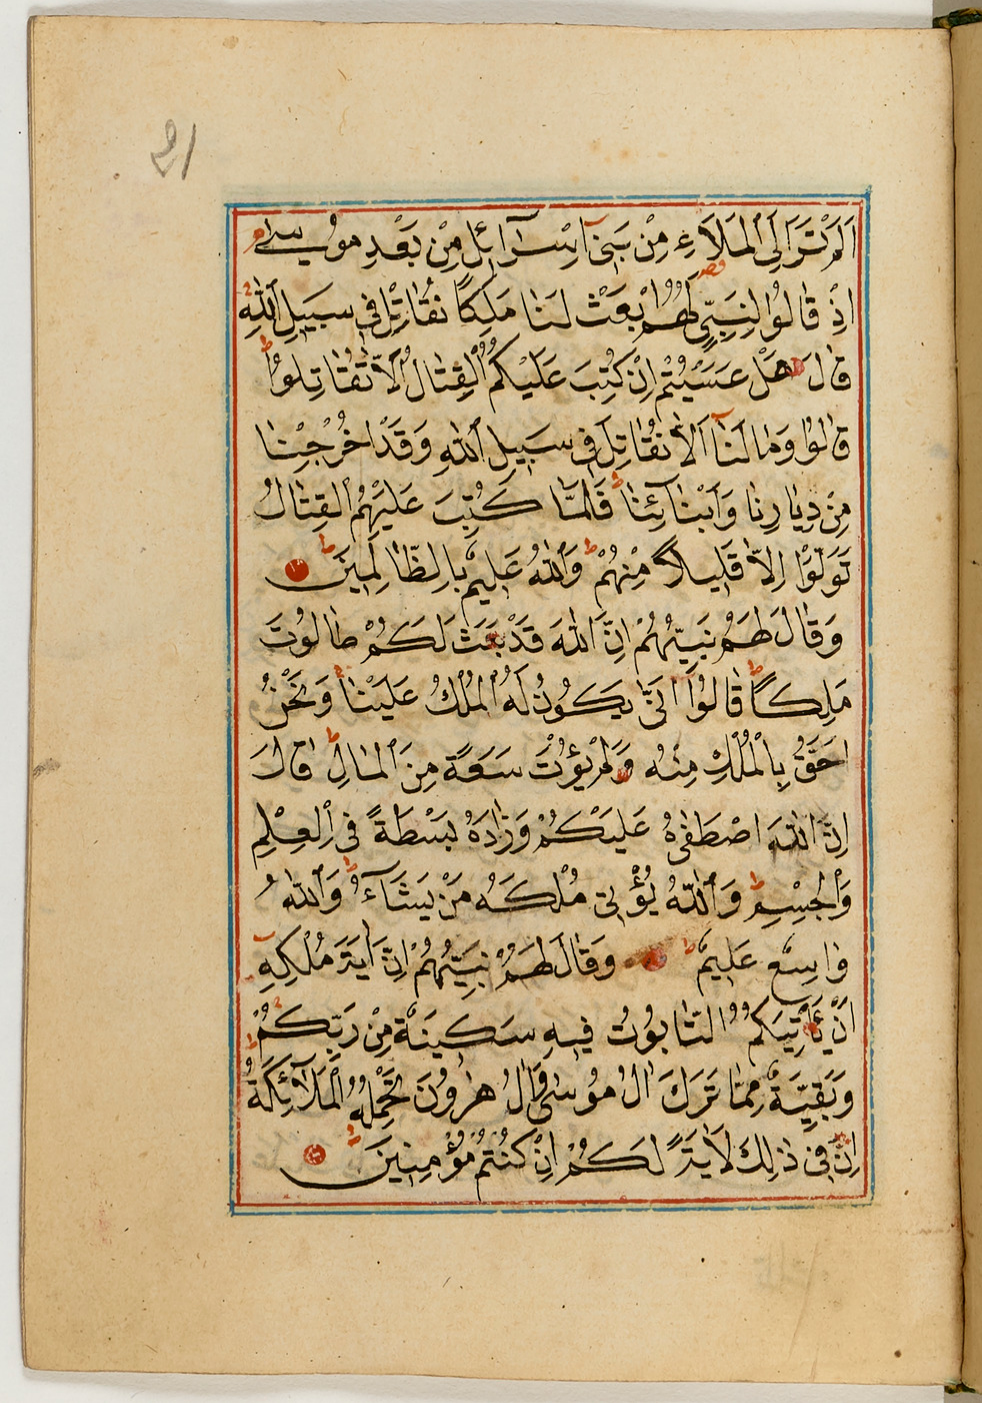 21
اَلَمْ تَرَ اِلَى الْمَلَاَءِ مِنْ بَنٖٓي اِسْرَآئٖلَ مِنْ بَعْدِ مُوسٰى م
اِذْ قَالُوا لِنَبِيٍّ لَهُمُ ابْعَثْ لَنَا مَلِكًا نُقَاتِلْ فٖي سَبٖيلِ اللّٰهِ
قَالَ هَلْ عَسَيْتُمْ اِنْ كُتِبَ عَلَيْكُمُ الْقِتَالُ اَلَّا تُقَاتِلُوا ط
قَالُوا وَمَا لَنَآ اَلَّا نُقَاتِلَ فٖي سَبٖيلِ اللّٰهِ وَقَدْ اُخْرِجْنَا
مِنْ دِيَارِنَا وَاَبْنَآئِنَا ط فَلَمَّا كُتِبَ عَلَيْهِمُ الْقِتَالُ
تَوَلَّوْا اِلَّا قَلٖيلًا مِنْهُمْ ط وَاللّٰهُ عَلٖيمٌ بِالظَّالِمٖينَ ط
وَقَالَ لَهُمْ نَبِيُّهُمْ اِنَّ اللّٰهَ قَدْ بَعَثَ لَكُمْ طَالُوتَ
مَلِكًا ط قَالُوٓا اَنّٰى يَكُونُ لَهُ الْمُلْكُ عَلَيْنَا وَنَحْنُ
اَحَقُّ بِالْمُلْكِ مِنْهُ وَلَمْ يُؤْتَ سَعَةً مِنَ الْمَالِ ط قَالَ
اِنَّ اللّٰهَ اصْطَفٰيهُ عَلَيْكُمْ وَزَادَهُ بَسْطَةً فِي الْعِلْمِ
وَالْجِسْمِ ط وَاللّٰهُ يُؤْتٖي مُلْكَهُ مَنْ يَشَآءُ ط وَاللّٰهُ
وَاسِعٌ عَلٖيمٌ ط وَقَالَ لَهُمْ نَبِيُّهُمْ اِنَّ اٰيَةَ مُلْكِهٖٓ
اَنْ يَأْتِيَكُمُ التَّابُوتُ فٖيهِ سَكٖينَةٌ مِنْ رَبِّكُمْ
وَبَقِيَّةٌ مِمَّا تَرَكَ اٰلُ مُوسٰى وَاٰلُ هٰرُونَ تَحْمِلُهُ الْمَلَآئِكَةُ ط
اِنَّ فٖي ذٰلِكَ لَاٰيَةً لَكُمْ اِنْ كُنْتُمْ مُؤْمِنٖينَ ط